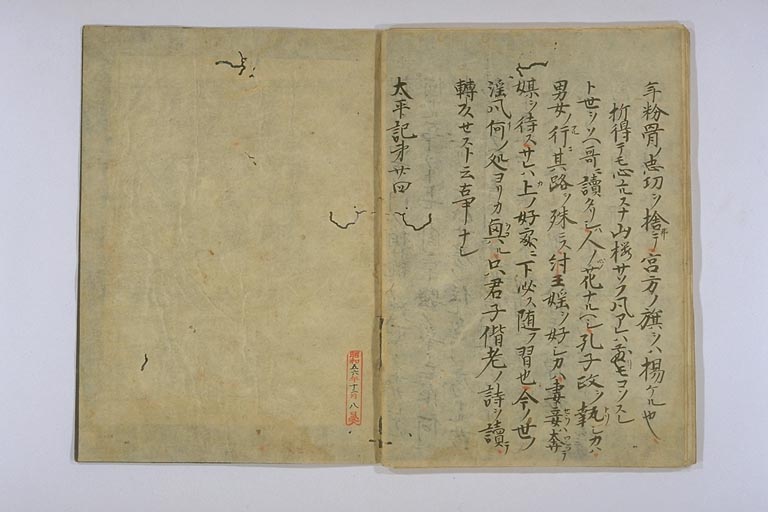 年粉骨ノ忠功ヲ捨テ宮方ノ旗ヲハ揚ケル也
折得テモ心ユルスナ山桜サソフ風アラハ
ト世ソソ哥ニ讀タリシ人ノ花ナルヘシ孔子政ヲ執シカハ
男女ノ行ニ其路ヲ殊ニス紂王婬ヲ好シカハ妻妾奔
媒ヲ待ス サレハ上ノ好家ニ下必ス随フ習也今ノ世ノ
淫風何ノ処ヨリカ興ル只君子偕老ノ詩ヲ讀テ
轉及セスト云古事ナシ
太平記第廿四
昭和五六年十二月八日